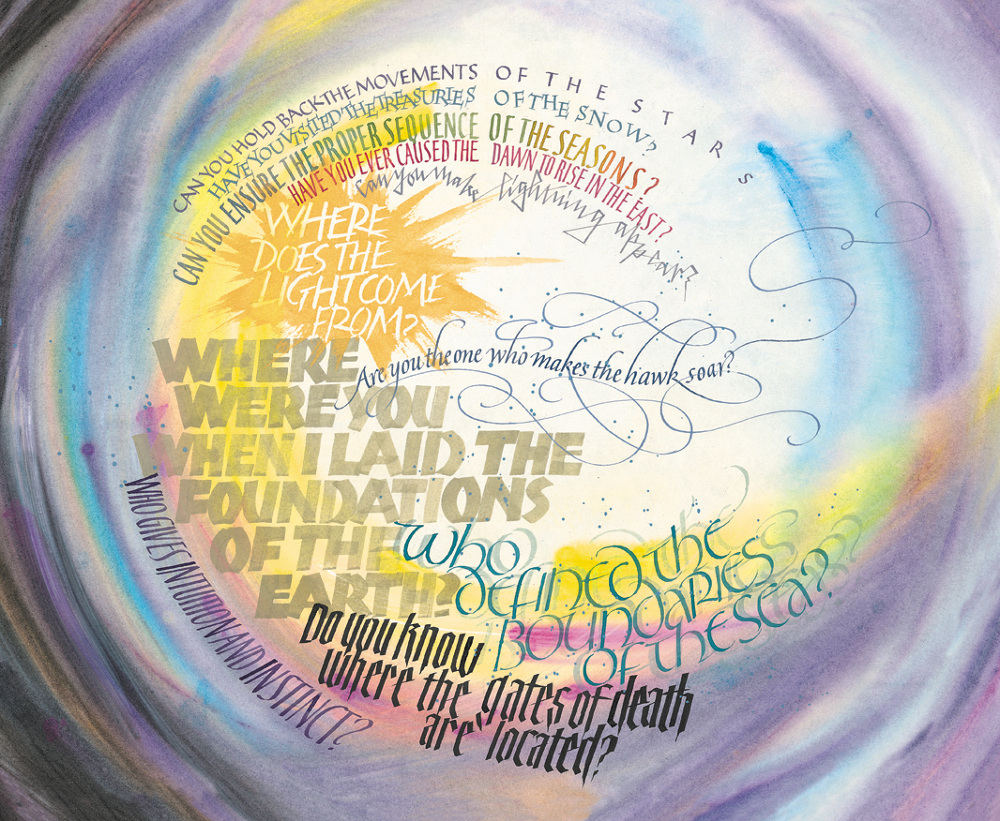 CAN YOU HOLD BACK THE MOVEMENTS OF THE STARS
HAVE YOU VISITED THE TREASURIES OF THE SNOW?
CAN YOU ENSURE THE PROPER SEQUENCE OF THE SEASONS?
HAVE YOU EVER CAUSED THE DAWN TO RISE IN THE EAST?
Can You Make lightning appear?
WHERE
DOES THE
LIGHT COME
FROM?
Are you the one who makes the hawk soar?
WHERE
WERE YOU
WHEN I LAID THE
FOUNDATIONS
OF THE
EARTH?
WHO GIVES INTUITION AND INSTINCT?
Who
defined the
Boundaries
of the Sea?
Do you know
where the gates of death
are located?